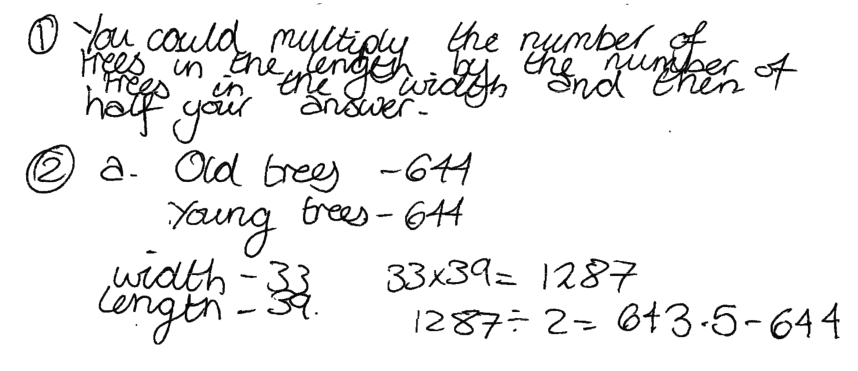 ① You could multiply the number of
trees in the length by the number of
trees in the width and then
half your answer.
② a. Old trees - 644
Young trees - 644
width - 33 33x39= 1287
length - 39. 1287÷2= 643.5-644